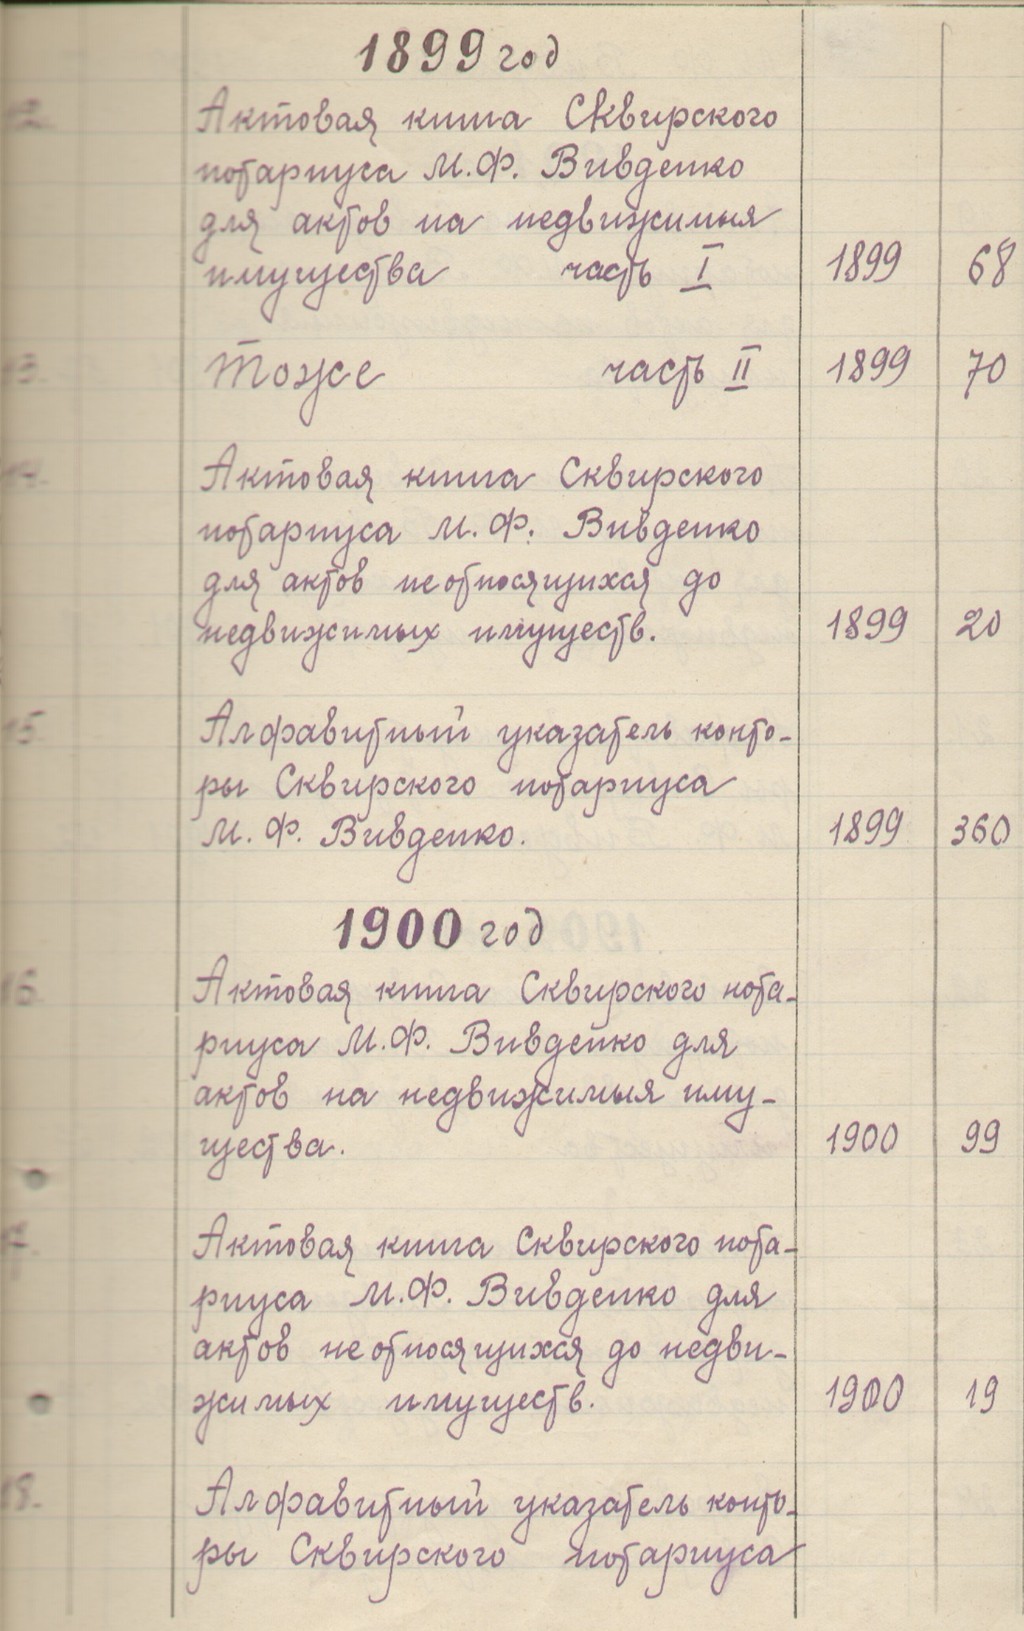 1899 год
12. Актовая книга Сквирского
нотариуса М.Ф. Вивденко
для актов на недвижимыя
имущества часть I 1899 68
13. Тоже часть II 1899 70
14. Актовая книга Сквирского
нотариуса М.Ф. Вивденко
для актов не относящихся до
недвижимых имуществ. 1899 20
15. Алфавитный указатель конто-
ры Сквирского нотариуса
М.Ф. Вивденко. 1899 360
1900 год
16. Актовая книга Сквирского нота-
риуса М.Ф. Вивденко для
актов на недвижимыя иму-
щества. 1900 99
17. Актовая книга Сквирского нота-
риуса М.Ф. Вивденко для
актов не относящихся до недви-
жимых имуществ. 1900 19
18. Алфавитный указатель конто-
ры Сквирского нотариуса